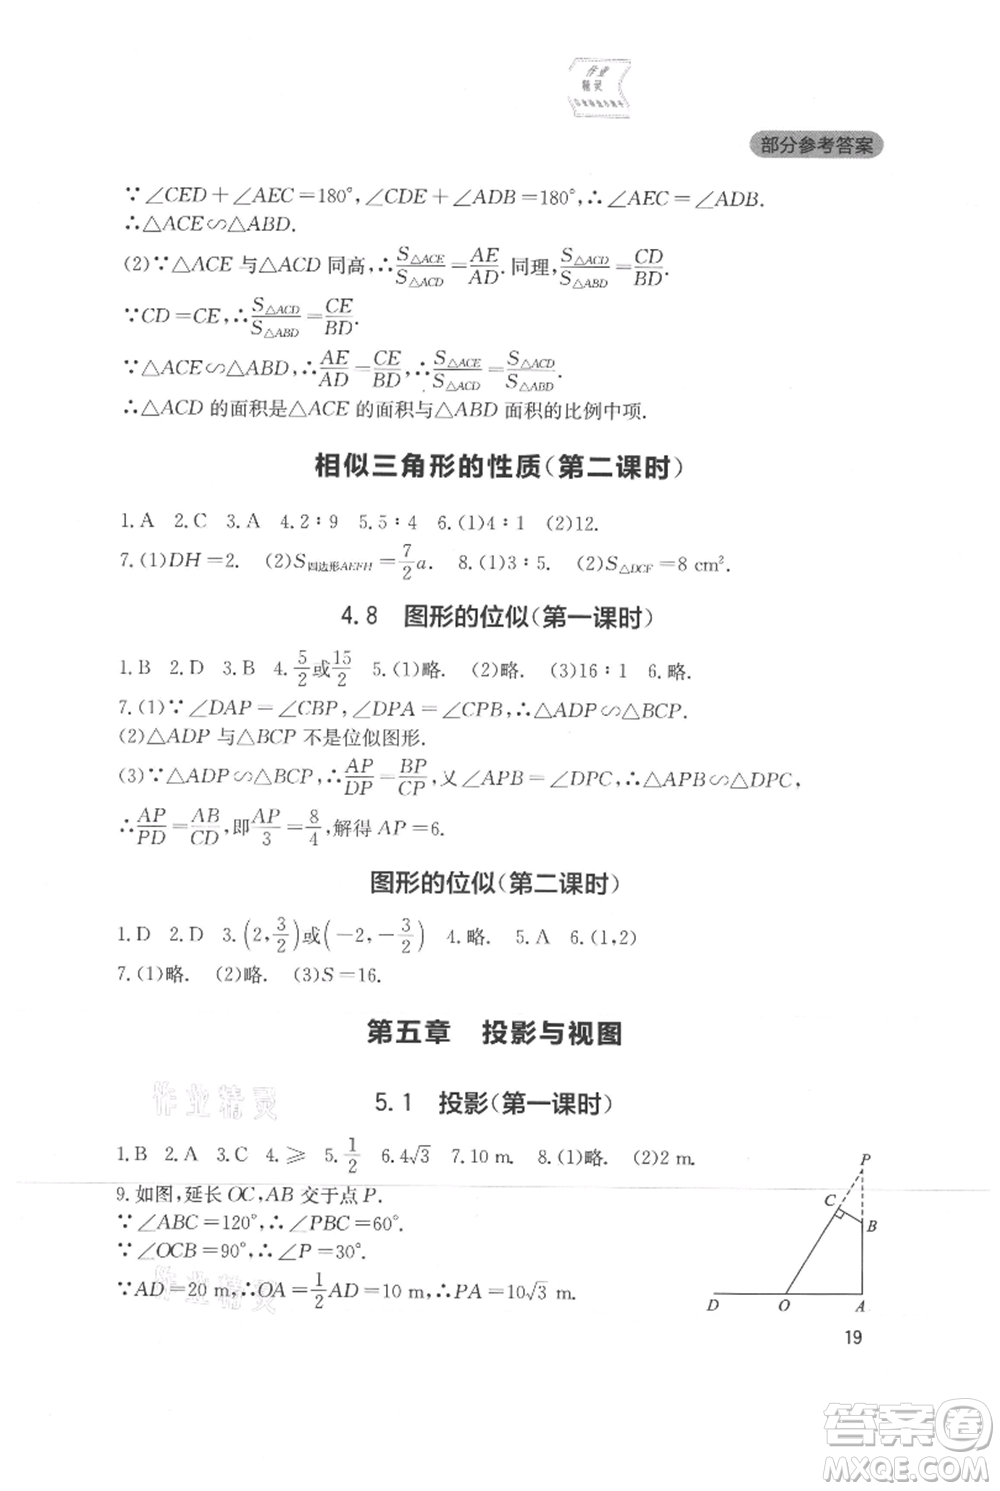 作业
精灵
部分参考答案
∵∠CED+∠AEC=180°,∠CDE+∠ADB=180°,∴∠AEC=∠ADB.
∴△ACE∽△ABD.
(2)∵△ACE与△ACD同高,∴S△ACE/S△ACD=AE/AD.同理,S△ACD/S△ABD=CD/BD.
∵CD=CE,∴S△ACD/S△ABD=CE/BD.
∵△ACE∽△ABD,∴AE/AD=CE/BD,∴S△ACE/S△ACD=S△ACD/S△ABD.
∴△ACD的面积是△ACE的面积与△ABD面积的比例中项.
相似三角形的性质(第二课时)
1.A 2.C 3.A 4.2∶9 5.5∶4 6.(1)4∶1 (2)12.
7.(1)DH=2. (2)S四边形AEFH=7/2a. 8.(1)3∶5. (2)S△DCF=8 cm².
4.8 图形的位似(第一课时)
1.B 2.D 3.B 4.5/2或15/2 5.(1)略. (2)略. (3)16∶1 6.略.
7.(1)∵∠DAP=∠CBP,∠DPA=∠CPB,∴△ADP∽△BCP.
(2)△ADP与△BCP不是位似图形.
(3)∵△ADP∽△BCP,∴AP/DP=BP/CP,又∠APB=∠DPC,∴△APB∽△DPC,
∴AP/PD=AB/CD,即AP/3=8/4,解得AP=6.
图形的位似(第二课时)
1.D 2.D 3.(2,3/2)或(-2,-3/2) 4.略. 5.A 6.(1,2)
7.(1)略. (2)略. (3)S=16.
第五章 投影与视图
作业精灵
5.1 投影(第一课时)
1.B 2.A 3.C 4.⩾ 5.1/2 6.4√3 7.10 m. 8.(1)略. (2)2 m.
9.如图,延长OC,AB交于点P.
∵∠ABC=120°,∴∠PBC=60°.
∵∠OCB=90°,∴∠P=30°.
∵AD=20 m,∴OA=1/2AD=10 m,∴PA=10√3 m.
作业精灵
P
C
B
D
O
A
19
答案卷
MXQE.COM